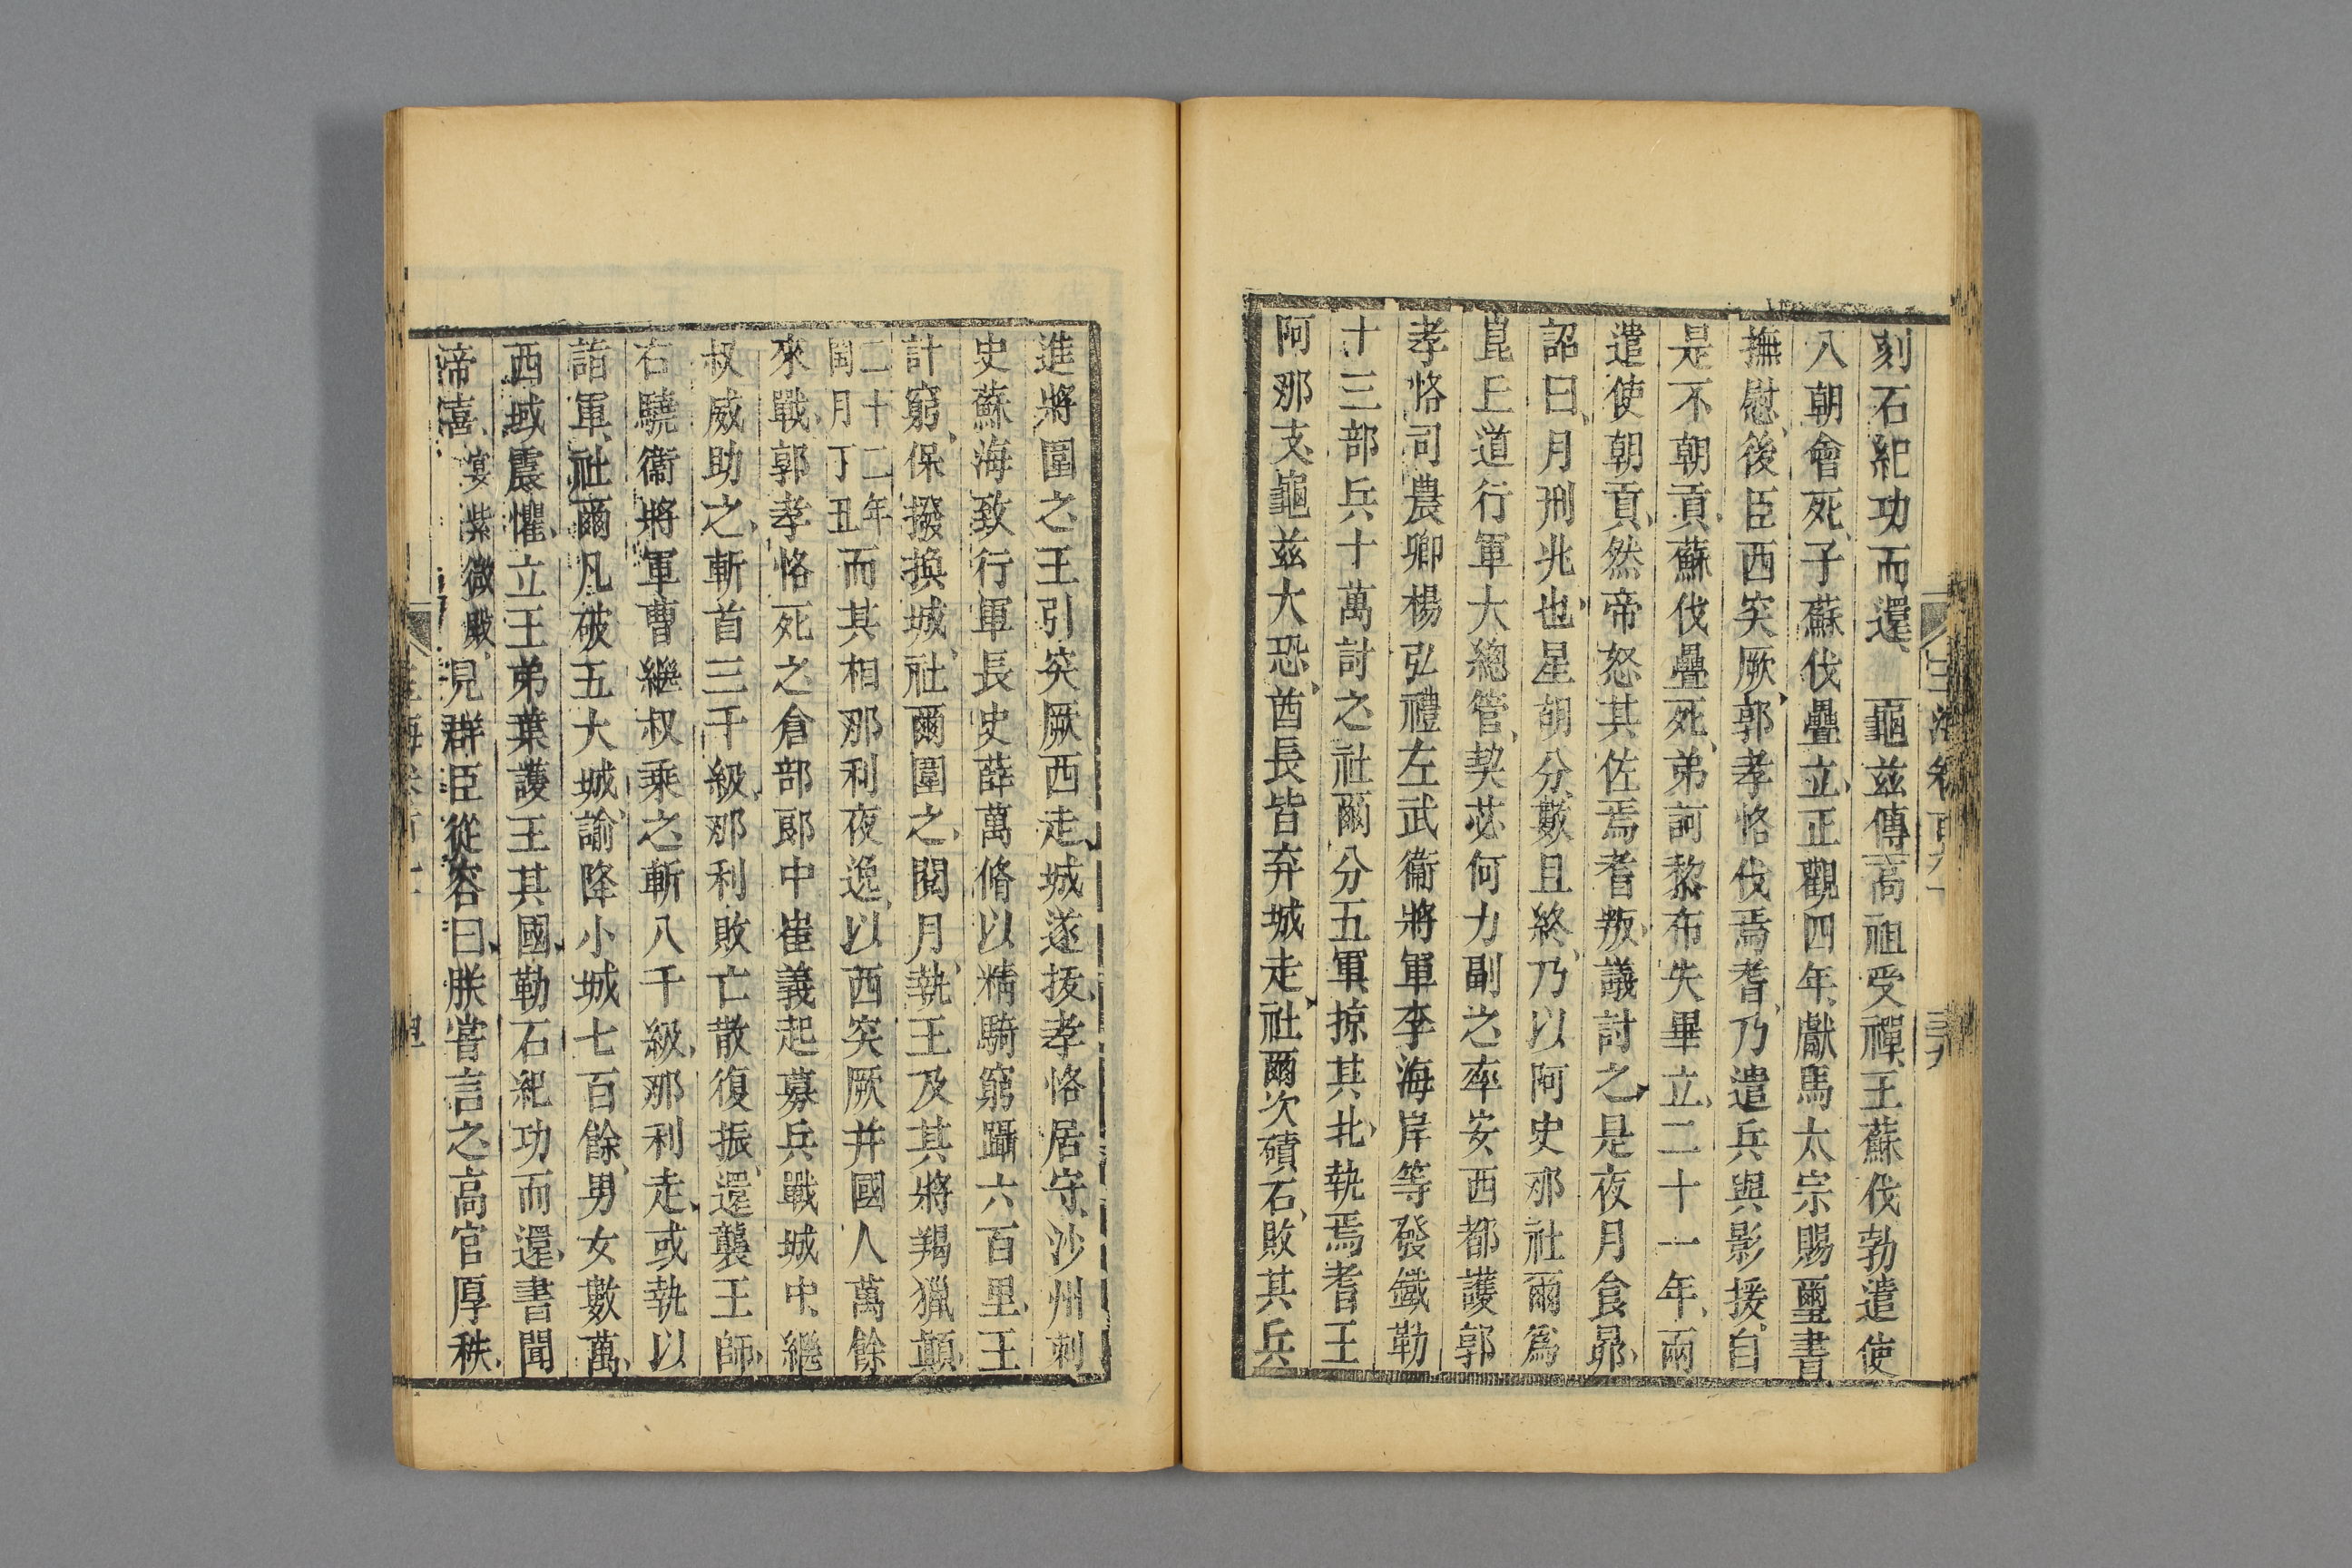 刻石紀功而還 龜兹傳高祖受禪王蘇伐勃遣使
八朝會死子蘇伐疊立正觀四年獻馬太宗賜璽書
撫慰後臣西突厥郭孝恪伐焉耆乃遣兵與影援自
是不朝貢蘇伐疊死弟訶黎布失畢立二十一年兩
遣使朝貢然帝怒其佐焉耆叛議討之是夜月食昴
詔曰月刑兆也星胡分數且終乃以阿史那社爾爲
崑丘道行軍大緫管契苾何力副之率安西都護郭
孝恪司農卿楊弘禮左武衞將軍李海岸等發鐵勒
十三部兵十萬討之社爾分五軍掠其北執焉耆王
阿那支龜兹大恐酋長皆弃城走社爾次磧石敗其兵
進將圍之王引突厥西走城遂拔孝恪居守沙州刺
史蘇海致行軍長史薛萬脩以精騎窮躡六百里王
計窮保撥換城社爾圍之閱月執王及其將羯獵顛
二十二年
閏月丁丑
而其相那利夜逸以西突厥并國人萬餘
來戰郭孝恪死之倉部郎中崔義起募兵戰城中繼
叔威助之斬首三千級那利敗亡散復振還襲王師
右驍衞將軍曹繼叔乘之斬八千級那利走或執以
詣軍社爾凡破五大城諭降小城七百餘男女數萬
西域震懼立王弟葉護王其國勒石紀功而還書聞
帝喜宴紫微殿見群臣從容曰朕嘗言之高官厚秩